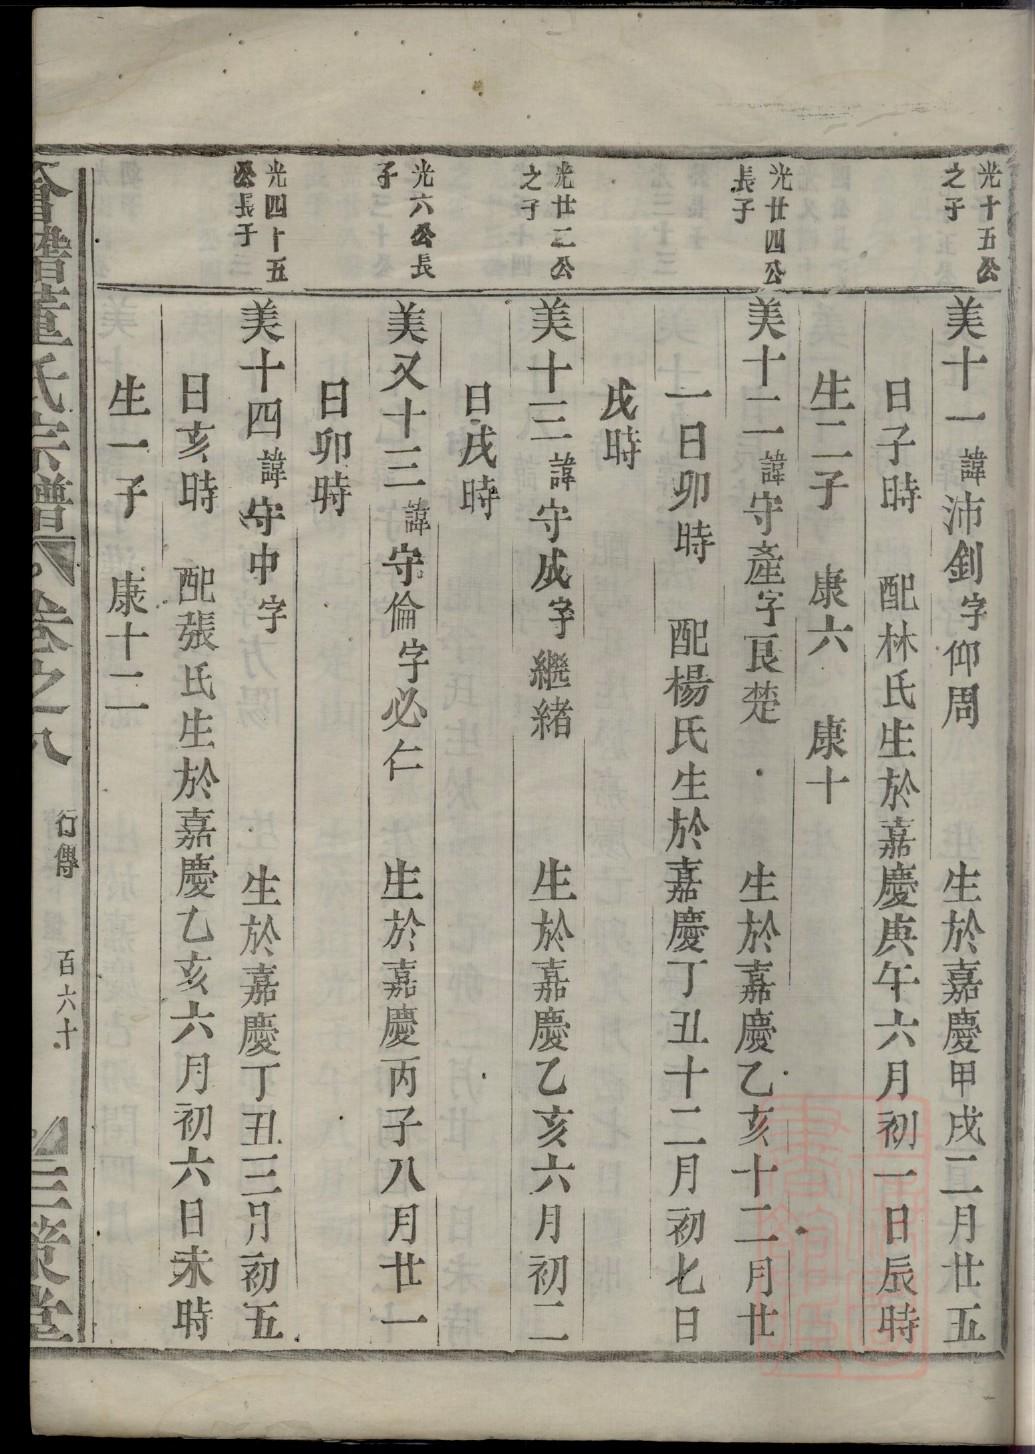 光十五公
之子
美十一 諱沛釗字仰周 生於嘉慶甲戌二月廿五
日子時 配林氏生於嘉慶庚午六月初一日辰時
生二子 康六 康十
光廿四公
長子
美十二 諱守產字艮楚 生於嘉慶乙亥十二月廿
一日卯時 配楊氏生於嘉慶丁丑十二月初七日
戌時
光廿二公
之子
美十三 諱守成字繼緒 生於嘉慶乙亥六月初二
日戌時
光六公長
子
美又十三 諱守倫字必仁 生於嘉慶丙子八月廿一
日卯時
光四十五
公長子
美十四 諱守中字 生於嘉慶丁丑三月初五
日亥時 配張氏生於嘉慶乙亥六月初六日未時
生一子 康十二
譜董氏宗譜 卷之八 行傳 百六十 三策堂